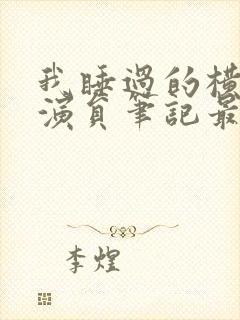 我睡過的橫
演員筆記最
李煌